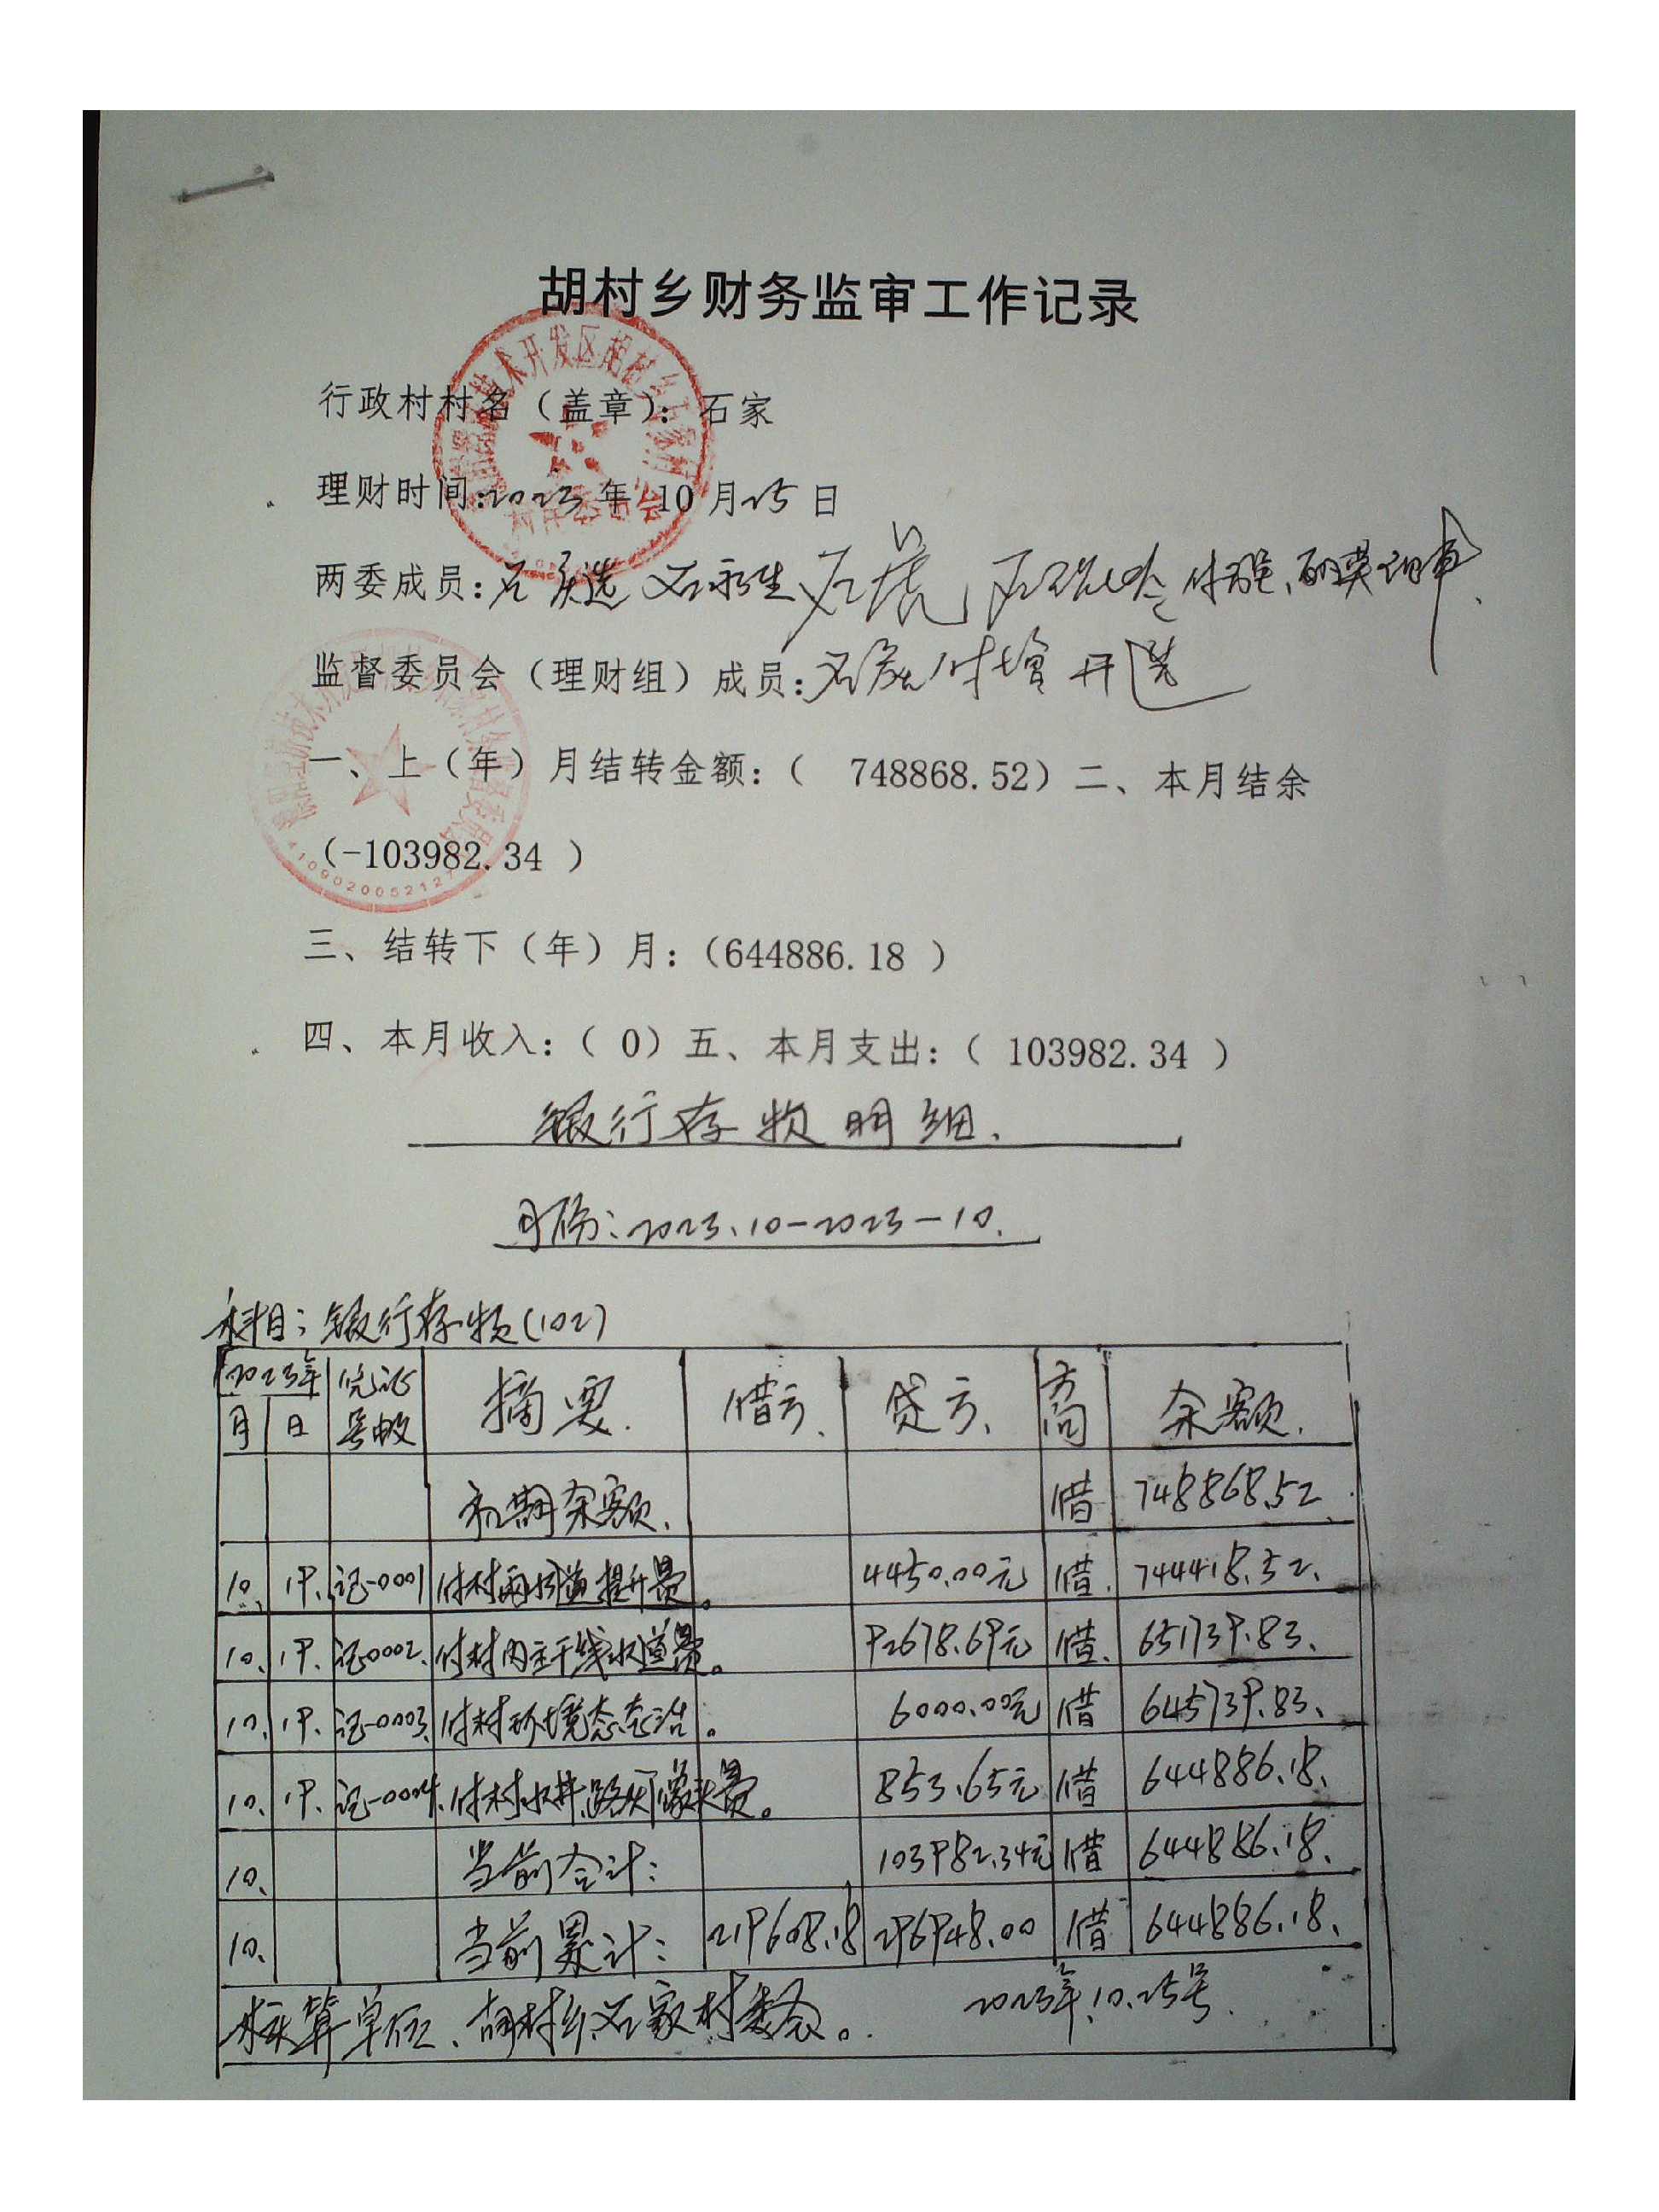 胡村乡财务监审工作记录
行政村村名（盖章）：石家
理财时间:2023年 10 月25 日
两委成员：石庆选 石永生
监督委员会（理财组）成员： 付增 开选
一、上（年）月结转金额：（ 748868.52）二、本月结余
（-103982.34 ）
4109020052127
三、结转下（年）月：（644886.18 ）
四、本月收入：（ 0）五、本月支出：（ 103982.34 ）
银行存款明细.
月份：2023.10-2023-10.
科目：银行存款(102)
2023年 凭证 摘要. 借方. 贷方. 方向 余额.
月 日 号数
初期余额. 借 748868.52
10. 19. 记-0001 付村两 提升费。 4450.00元 借. 744418.52.
10. 19. 记-0002. 付村内主干线水道费。 92678.69元 借. 651739.83.
10. 19. 记-0003. 付村环境 。 6000.00元 借 645739.83.
10. 19. 记-0004. 付村水井.路灯 费。 853.65元 借 644886.18.
10. 当前合计： 103982.34元 借 644886.18.
10. 当前累计： 219608.18 296948.00 借 644886.18.
核算单位、胡村乡石家村委会。 2023年.10.25号.